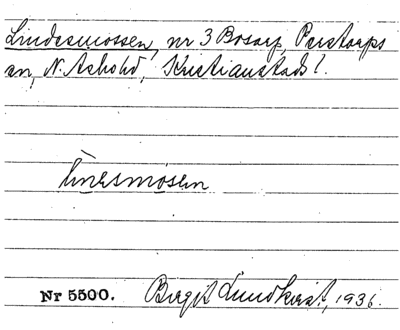 Lindesmossen, nr 3 Bosarp, Perstorps
sn, N. Åsbohd, Kristianstads l.
linesmosen
Nr 5500. Birgit Lundkvist, 1936.